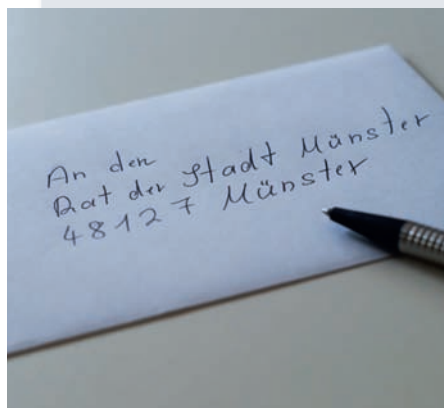 An den
Rat der Stadt Münster
48127 Münster